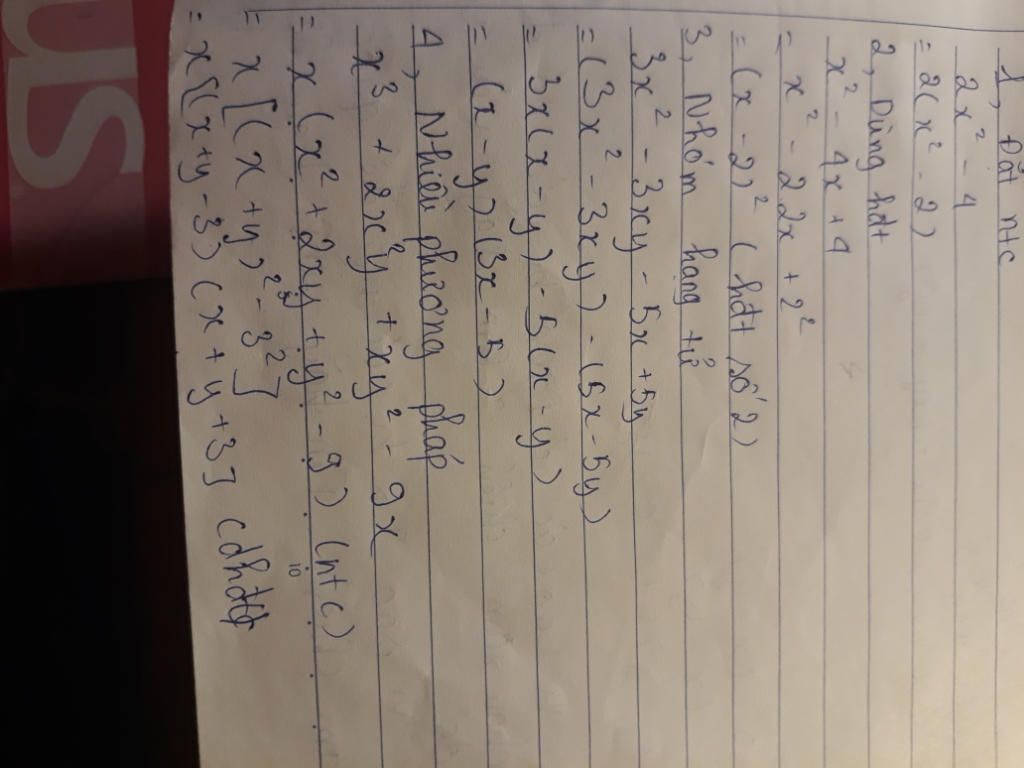 1, Đặt ntc
2x² - 4
= 2(x² - 2)
2, Dùng hđt
x² - 4x + 4
= x² - 2 2x + 2²
= (x - 2)² (hđt số 2)
3, Nhóm hạng tử
3x² - 3xy - 5x + 5y
= (3x² - 3xy) - (5x - 5y)
= 3x(x - y) - 5(x - y)
= (x - y) (3x - 5)
4, Nhiều phương pháp
x³ + 2x²y + xy² - 9x
= x (x² + 2xy + y² - 9) (ntc)
= x [(x + y)² - 3²]
= x[(x + y - 3) (x + y + 3)]
10
us